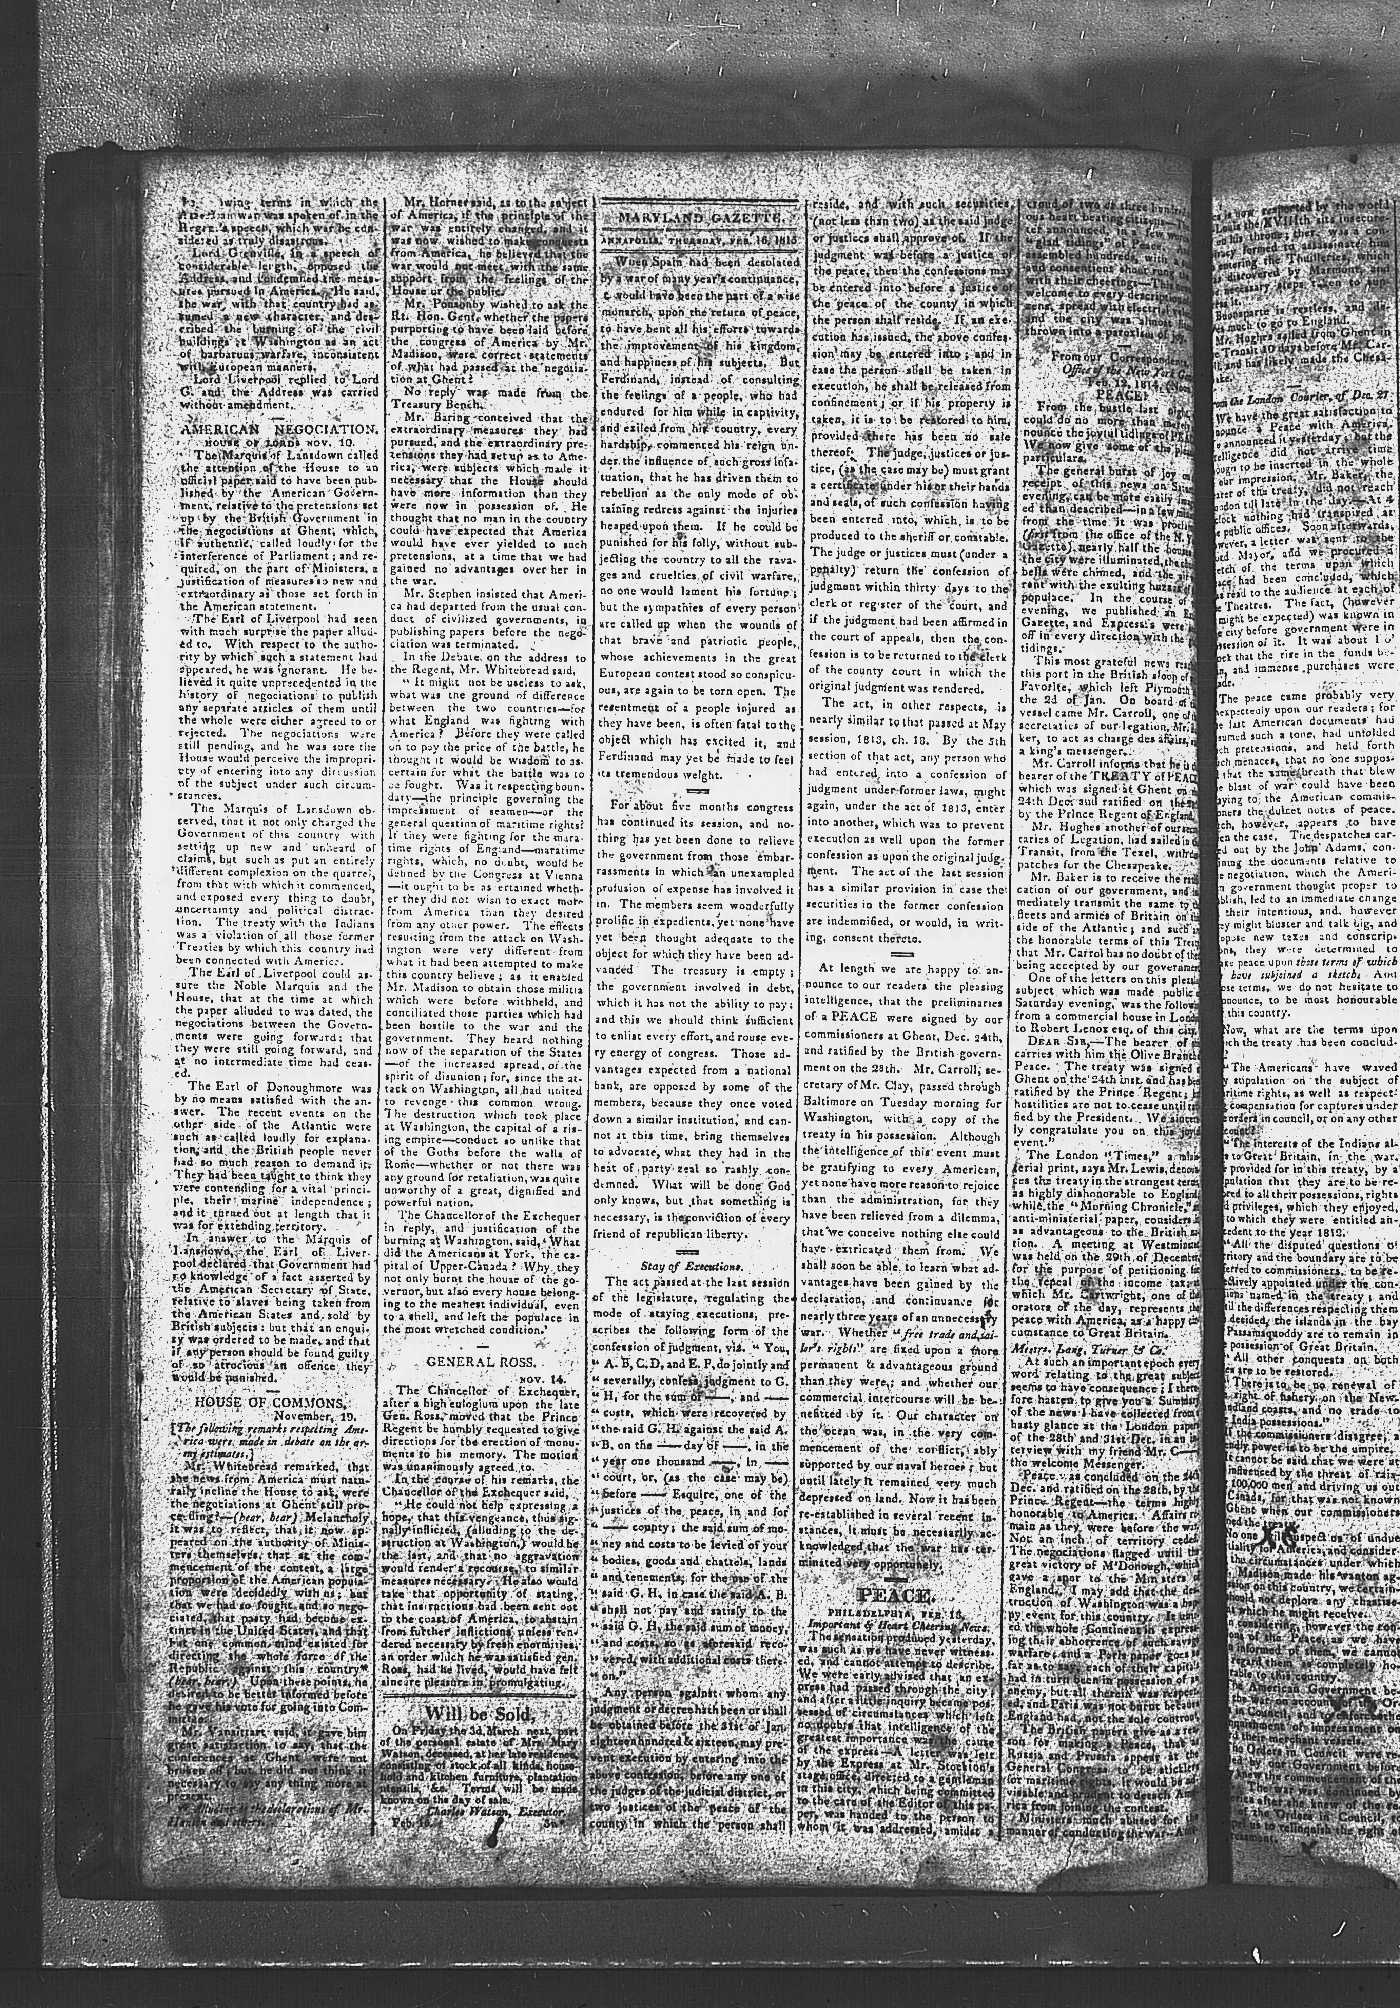 lowing terms in which the
American war was spoken of in the
Regent's speech, which war he con-
sidered as truly disastrous.
Lord Grenville, in a speech of
considerable length, opposed the
Address, and condemned the meas-
ures pursued in America. He said,
the war, with that country had as-
sumed a new character, and des-
cribed the burning of the civil
buildings at Washington as an act
of barbarous warfare, inconsistent
with European manners.
Lord Liverpool replied to Lord
G. and the Address was carried
without amendment.
AMERICAN NEGOCIATION.
HOUSE OF LORDS NOV. 10.
The Marquis of Lansdown called
the attention of the House to an
official paper said to have been pub-
lished by the American Govern-
ment, relative to the pretensions set
up by the British Government in
the negociations at Ghent, which,
if authentic, called loudly for the
interference of Parliament; and re-
quired, on the part of Ministers, a
justification of measures so new and
extraordinary as those set forth in
the American statement.
The Earl of Liverpool had seen
with much surprise the paper allud-
ed to. With respect to the autho-
rity by which such a statement had
appeared, he was ignorant. He be-
lieved it quite unprecedented in the
history of negociations to publish
any separate articles of them until
the whole were either agreed to or
rejected. The negociations were
still pending, and he was sure the
House would perceive the impropri-
ety of entering into any discussion
of the subject under such circum-
stances.
The Marquis of Lansdown ob-
served, that it not only charged the
Government of this country with
setting up new and unheard of
claims, but such as put an entirely
different complexion on the quarrel,
from that with which it commenced,
and exposed every thing to doubt,
uncertainty and political distrac-
tion. The treaty with the Indians
was a violation of all those former
Treaties by which this country had
been connected with America.
The Earl of Liverpool could as-
sure the Noble Marquis and the
House, that at the time at which
the paper alluded to was dated, the
negociations between the Govern-
ments were going forward: that
they were still going forward, and
at no intermediate time had ceas-
ed.
The Earl of Donoughmore was
by no means satisfied with the an-
swer. The recent events on the
other side of the Atlantic were
such as called loudly for explana-
tion, and the British people never
had so much reason to demand it.
They had been taught to think they
were contending for a vital princi-
ple, their marine independence;
and it turned out at length that it
was for extending territory.
In answer to the Marquis of
Lansdown, the Earl of Liver-
pool declared that Government had
no knowledge of a fact asserted by
the American Secretary of State,
relative to slaves being taken from
the American States and sold by
British subjects: but that an enqui-
ry was ordered to be made, and that
if any person should be found guilty
of so atrocious an offence they
would be punished.
HOUSE OF COMMONS,
November, 19.
[The following remarks respecting Ame-
rica were made in debate on the ar-
my estimates.]
Mr. Whitebread remarked, that
the news from America must natu-
rally incline the House to ask, were
the negociations at Ghent still pro-
ceeding?—(hear, hear) Melancholy
it was to reflect, that it now ap-
peared on the authority of Minis-
ters themselves, that at the com-
mencement of the contest, a large
proportion of the American popula-
tion were decidedly with us; but
that we had so fought, and so nego-
ciated, that party had become ex-
tinct in the United States, and that
but one common mind existed for
directing the whole force of the
Republic against this country*
(hear, hear.) Upon these points, he
desired to be better informed before
he gave his vote for going into Com-
mittee.
Mr. Vansittart said, it gave him
great satisfaction to say, that the
conferences at Ghent were not
broken off; but he did not think it
necessary to say any thing more at
present.
* Alluding to the declarations of Mr.
Hanson and others.
Mr. Horner said, as to the subject
of America, if the principle of the
war was entirely changed, and it
was now wished to make conquests
from America, he believed that the
war would not meet with the same
support from the feelings of the
House or the public.
Mr. Ponsonby wished to ask the
Rt. Hon. Gent. whether the papers
purporting to have been laid before
the congress of America by Mr.
Madison, were correct statements
of what had passed at the negotia-
tion at Ghent?
No reply was made from the
Treasury Bench.
Mr. Baring conceived that the
extraordinary measures they had
pursued, and the extraordinary pre-
tensions they had set up as to Ame-
rica, were subjects which made it
necessary that the House should
have more information than they
were now in possession of. He
thought that no man in the country
could have expected that America
would have ever yielded to such
pretensions, at a time that we had
gained no advantages over her in
the war.
Mr. Stephen insisted that Ameri-
ca had departed from the usual con-
duct of civilized governments, in
publishing papers before the nego-
ciation was terminated.
In the Debate, on the address to
the Regent, Mr. Whitebread said,
"It might not be useless to ask,
what was the ground of difference
between the two countries—for
what England was fighting with
America? Before they were called
on to pay the price of the battle, he
thought it would be wisdom to as-
certain for what the battle was to
be fought. Was it respecting boun-
dary—the principle governing the
impressment of seamen—or the
general question of maritime rights?
If they were fighting for the mara-
time rights of England—maratime
rights, which, no doubt, would be
defined by the Congress at Vienna
—it ought to be as ertained wheth-
er they did not wish to exact more
from America than they desired
from any other power. The effects
resulting from the attack on Wash-
ington were very different from
what it had been attempted to make
this country believe; as it enabled
Mr. Madison to obtain those militia
which were before withheld, and
conciliated those parties which had
been hostile to the war and the
government. They heard nothing
now of the separation of the States
—of the increased spread, or the
spirit of disunion; for, since the at-
tack on Washington, all had united
to revenge this common wrong.
The destruction which took place
at Washington, the capital of a ris-
ing empire—conduct so unlike that
of the Goths before the walls of
Rome—whether or not there was
any ground for retaliation, was quite
unworthy of a great, dignified and
powerful nation.
The Chancellor of the Exchequer
in reply, and justification of the
burning at Washington, said, 'What
did the Americans at York, the ca-
pital of Upper-Canada? Why, they
not only burnt the house of the go-
vernor, but also every house belong-
ing to the meanest individual, even
to a shell, and left the populace in
the most wretched condition.'
GENERAL ROSS.
NOV. 14.
The Chancellor of Exchequer,
after a high eulogium upon the late
Gen. Ross, moved that the Prince
Regent be humbly requested to give
directions for the erection of monu-
ments to his memory. The motion
was unanimously agreed to.
In the course of his remarks, the
Chancellor of the Exchequer said,
"He could not help expressing a
hope, that this vengeance, thus sig-
nally inflicted, (alluding to the de-
struction at Washington,) would be
the last, and that no aggravation
would render a recourse to similar
measures necessary. He also would
take that opportunity of stating,
that instructions had been sent out
to the coast of America, to abstain
from further inflictions unless ren-
dered necessary by fresh enormities,
an order which he was satisfied gen.
Ross, had he lived, would have felt
sincere pleasure in promulgating.
Will be Sold,
On Friday the 3d. March next, part
of the personal estate of Mrs. Mary
Watson, deceased, at her late residence,
consisting of stock of all kinds, house-
hold and kitchen furniture, plantation
utensils, &c. Terms will be made
known on the day of sale.
Charles Watson, Executor.
Feb. 16. 3w*
MARYLAND GAZETTE.
ANNAPOLIS, THURSDAY, FEB. 16, 1815
When Spain had been desolated
by a war of many year's continuance,
it would have been the part of a wise
monarch, upon the return of peace,
to have bent all his efforts towards
the improvement of his kingdom,
and happiness of his subjects. But
Ferdinand, instead of consulting
the feelings of a people, who had
endured for him while in captivity,
and exiled from his country, every
hardship, commenced his reign un-
der the influence of such gross infa-
tuation, that he has driven them to
rebellion as the only mode of ob-
taining redress against the injuries
heaped upon them. If he could be
punished for his folly, without sub-
jecting the country to all the rava-
ges and cruelties of civil warfare,
no one would lament his fortune;
but the sympathies of every person
are called up when the wounds of
that brave and patriotic people,
whose achievements in the great
European contest stood so conspicu-
ous, are again to be torn open. The
resentment of a people injured as
they have been, is often fatal to the
object which has excited it, and
Ferdinand may yet be made to feel
its tremendous weight.
For about five months congress
has continued its session, and no-
thing has yet been done to relieve
the government from those embar-
rassments in which an unexampled
profusion of expense has involved it
in. The members seem wonderfully
prolific in expedients, yet none have
yet been thought adequate to the
object for which they have been ad-
vanced The treasury is empty;
the government involved in debt,
which it has not the ability to pay;
and this we should think sufficient
to enlist every effort, and rouse eve-
ry energy of congress. Those ad-
vantages expected from a national
bank, are opposed by some of the
members, because they once voted
down a similar institution, and can-
not at this time, bring themselves
to advocate, what they had in the
heat of party zeal so rashly con-
demned. What will be done God
only knows, but that something is
necessary, is the conviction of every
friend of republican liberty.
Stay of Executions.
The act passed at the last session
of the legislature, regulating the
mode of staying executions, pre-
scribes the following form of the
confession of judgment, viz. "You,
"A. B, C. D, and E. F, do jointly and
"severally, confess judgment to G.
"H, for the sum of ——, and ——
"costs, which were recovered by
"the said G. H. against the said A.
"B. on the —— day of ——, in the
"year one thousand ——, in ——
"court, or, (as the case may be)
"before —— Esquire, one of the
"justices of the peace, in and for
"—— county; the said sum of mo-
"ney and costs to be levied of your
"bodies, goods and chattels, lands
"and tenements, for the use of the
"said G. H. in case the said A. B.
"shall not pay and satisfy to the
"said G. H. the said sum of money,
"and costs, so as aforesaid reco-
"vered, with additional costs there-
"on."
Any person against whom any
judgment or decree hath been or shall
be obtained before the 31st of Jan.
eighteen hundred & sixteen, may pre-
vent execution by entering into the
above confession, before any one of
the judges of the judicial district, or
two justices of the peace of the
county in which the person shall
reside, and with such securities,
(not less than two) as the said judge
or justices shall approve of. If the
judgment was before a justice of
the peace, then the confessions may
be entered into before a justice of
the peace of the county in which
the person shall reside. If, an exe-
cution has issued, the above confes-
sion may be entered into; and in
case the person shall be taken in
execution, he shall be released from
confinement; or if his property is
taken, it is to be restored to him,
provided there has been no sale
thereof. The judge, justices or jus-
tice, (as the case may be) must grant
a certificate under his or their hands
and seals, of such confession having
been entered into, which, is to be
produced to the sheriff or constable.
The judge or justices must (under a
penalty) return the confession of
judgment within thirty days to the
clerk or register of the court, and
if the judgment had been affirmed in
the court of appeals, then the con-
fession is to be returned to the clerk
of the county court in which the
original judgment was rendered.
The act, in other respects, is
nearly similar to that passed at May
session, 1813, ch. 18. By the 5th
section of that act, any person who
had entered into a confession of
judgment under former laws, might
again, under the act of 1813, enter
into another, which was to prevent
execution as well upon the former
confession as upon the original judg-
ment. The act of the last session
has a similar provision in case the
securities in the former confession
are indemnified, or would, in writ-
ing, consent thereto.
At length we are happy to an-
nounce to our readers the pleasing
intelligence, that the preliminaries
of a PEACE were signed by our
commissioners at Ghent, Dec. 24th,
and ratified by the British govern-
ment on the 28th. Mr. Carroll, se-
cretary of Mr. Clay, passed through
Baltimore on Tuesday morning for
Washington, with a copy of the
treaty in his possession. Although
the intelligence of this event must
be gratifying to every American,
yet none have more reason to rejoice
than the administration, for they
have been relieved from a dilemma,
that we conceive nothing else could
have extricated them from. We
shall soon be able, to learn what ad-
vantages have been gained by the
declaration, and continuance for
nearly three years of an unnecessary
war. Whether "free trade and sai-
lor's rights" are fixed upon a more
permanent & advantageous ground
than they were; and whether our
commercial intercourse will be be-
nefitted by it. Our character on
the ocean was, in the very com-
mencement of the conflict, ably
supported by our naval heroes; but
until lately it remained very much
depressed on land. Now it has been
re-established in several recent in-
stances, it must be necessarily ac-
knowledged that the war has ter-
minated very opportunely.
PEACE.
PHILADELPHIA, FEB. 13.
Important & Heart Cheering News.
The sensation produced yesterday,
was such as we have never witness-
ed, and cannot attempt to describe.
We were early advised that an ex-
press had passed through the city;
and after a little inquiry became pos-
sessed of circumstances which left
no doubts that intelligence of the
greatest importance was the cause
of the express—A letter was left
by the Express at Mr. Stockton's
stage office, directed to a gentleman
in this city, which being committed
to the care of the Editor of this pa-
per, was handed to the person to
whom it was addressed, amidst a
croud of two or three hundred
ous heart beating citizens
ter announced, in a few words
"glad tidings" of Peace.
assembled hundreds, with
and consentient shout rung
with their cheerings—This
welcome to every description
ment, spread with electrical
and the city was almost
thrown into a paroxism of joy.
From our Correspondent
Office of the New York Ga
Feb. 12, 1814, (Noon
PEACE!
From the bustle last night
could do no more than merely
nounce the joyful tidings of PEAC
We now give some of the
particulars.
The general burst of joy on
receipt of this news on
evening, can be more easily
ed than described—in a few
from the time it was procl
(first from the office of the N. Y.
Gazette), nearly half the houses
the city were illuminated, the
bells were chimed, and the air
rent with the exulting huzzas of
populace. In the course of
evening, we published an
Gazette, and Express's were
off in every direction with the
tidings.
This most grateful news
this port in the British sloop of
Favorite, which left Plymouth
the 2d of Jan. On board of
vessel came Mr. Carroll, one of
secretaries of our legation, Mr.
ker, to act as charge des affairs,
a king's messenger.
Mr. Carroll informs that he is
bearer of the TREATY of PEACE
which was signed at Ghent on
24th Dec. and ratified on the
by the Prince Regent of England.
Mr. Hughes another of our
caries of Legation, had sailed in
Transit, from the Texel, with
patches for the Chesapeake.
Mr. Baker is to receive the
cation of our government, and
mediately transmit the same to
fleets and armies of Britain on
side of the Atlantic; and such
the honorable terms of this Treaty
that Mr. Carrol has no doubt of
being accepted by our government
One of the letters on this
subject which was made public
Saturday evening, was the follow
from a commercial house in London
to Robert Lenox esq. of this city.
DEAR SIR,—The bearer of
carries with him the Olive Branch
Peace. The treaty was signed
Ghent on the 24th inst. and has been
ratified by the Prince Regent;
hostilities are not to cease until
fied by the President. We
ly congratulate you on this
event."
The London "Times," a
ferial print, says Mr. Lewis,
ces the treaty in the strongest terms
as highly dishonorable to England
while the "Morning Chronicle,"
anti-ministerial paper, considers
as advantageous to the British
tion. A meeting at Westminster
was held on the 29th of December
for the purpose of petitioning
the repeal of the income tax
which Mr. Cartwright, one of
orators of the day, represents
peace with America, as a happy
cumstance to Great Britain.
Messrs. Lang, Turner & Co.
At such an important epoch every
word relating to the great subject
seems to have consequence; I
fore hasten to give you a Summary
of the news I have collected from
hasty glance at the London papers
of the 28th and 31st Dec. in an
terview with my friend Mr. C——
the welcome Messenger.
Peace was concluded on the 24th
Dec. and ratified on the 28th, by
Prince Regent—the terms highly
honorable to America. Affairs
main as they were before the war.
Not an inch of territory ceded.
The negociations flagged until
great victory of M'Donough, which
gave a spur to the Ministers
England. I may add that the des-
truction of Washington was a hap-
py event for this country. It
ed the whole Continent in express-
ing their abhorrence of such savage
warfare; and a Paris paper goes so
far as to say, each of their capitals
had in turn been in possession of
enemy, but all therein was respect
ed; and Paris was not burnt because
England had not the sole controul.
The British papers give as a rea-
son for making a Peace, that
Russia and Prussia appear at the
General Congress to be sticklers
for maritime rights. It would be ad-
visable and prudent to detach Ame-
rica from joining the contest.
Ministers much abused for
manner of conducting the war—
is now requested by the world
Louis the XVIIIth sits insecure
on his throne; ther was a con-
formed to assassinate him
entering the Thuilleries, which
discovered by Marmont, and
necessary steps taken to sup-
Buonaparte is restless, and
much to go to England.
Mr. Hughes sailed from Ghent in
Transit 10 days before Mr. Car-
and has likely made the Chesa-
from the London Courier, of Dec. 27
We have the great satisfaction to
announce a Peace with America,
announced it yesterday; but the
intelligence did not arrive time
enough to be inserted in the whole
our impression. Mr. Baker, the
of the treaty, did not reach
till late in the day—At 4
clock nothing had transpired at
public offices. Soon afterwards,
however, a letter was sent to the
Mayor, and we procured a
sketch of the terms upon which
had been concluded, which
read to the audience at each of
Theatres. The fact, (however
might be expected) was known in
city before government were in
possession of it. It was about 1
that the rise in the funds be-
and immense purchases were
The peace came probably very
unexpectedly upon our readers; for
last American documents had
assumed such a tone, had unfolded
such pretensions, and held forth
such menaces, that no one suppos-
that the same breath that blew
blast of war could have been
to the American commis-
the dulcet notes of peace.
however, appears to have
the case. The despatches car-
out by the John Adams, con-
the documents relative to
negotiation, which the Ameri-
government thought proper to
led to an immediate change
their intentions, and, however
might bluster and talk big, and
new taxes and conscrip-
they were determined to
peace upon those terms of which
have subjoined a sketch. And
terms, we do not hesitate to
pronounce, to be most honourable
this country.
Now, what are the terms upon
the treaty has been conclud-
"The Americans have waved
stipulation on the subject of
maritime rights, as well as respect-
compensation for captures under
in council, or on any other
"The interests of the Indians al-
to Great Britain, in the war,
provided for in this treaty, by a
that they are to be re-
to all their possessions, rights
privileges, which they enjoyed,
to which they were entitled an-
to the year 1812.
"All the disputed questions of
and the boundary are to be
to commissioners, to be re-
appointed under the con-
named in the treaty; and
the differences respecting them
decided, the islands in the bay
Passamaquoddy are to remain in
possession of Great Britain.
"All other conquests on both
are to be restored.
There is to be no renewal of
right of fishery on the New-
coasts, and no trade to
India possessions."
If the commissioners disagree, a
power is to be the umpire.
It cannot be said that we were at
influenced by the threat of rais-
100,000 men and driving us out
Canada, for that was not known
Ghent when our commissioners
the
No one will suspect us of undue
America, and consider-
the circumstances under which
Madison made his wanton ag-
on this country, we certain-
should not deplore any chastise-
which he might receive.
considering, however the con-
of the Peace, as we have
of them, we cannot
regard them as completely ho-
to this country.
The American Government be-
the war on account of the Or-
in Council, and to enforce the
of impressment on
their merchant vessels.
The Orders in Council were re-
the commencement of the
The war was continued by
after she knew of the re-
of the Orders in Council, to
us to relinquish the right of